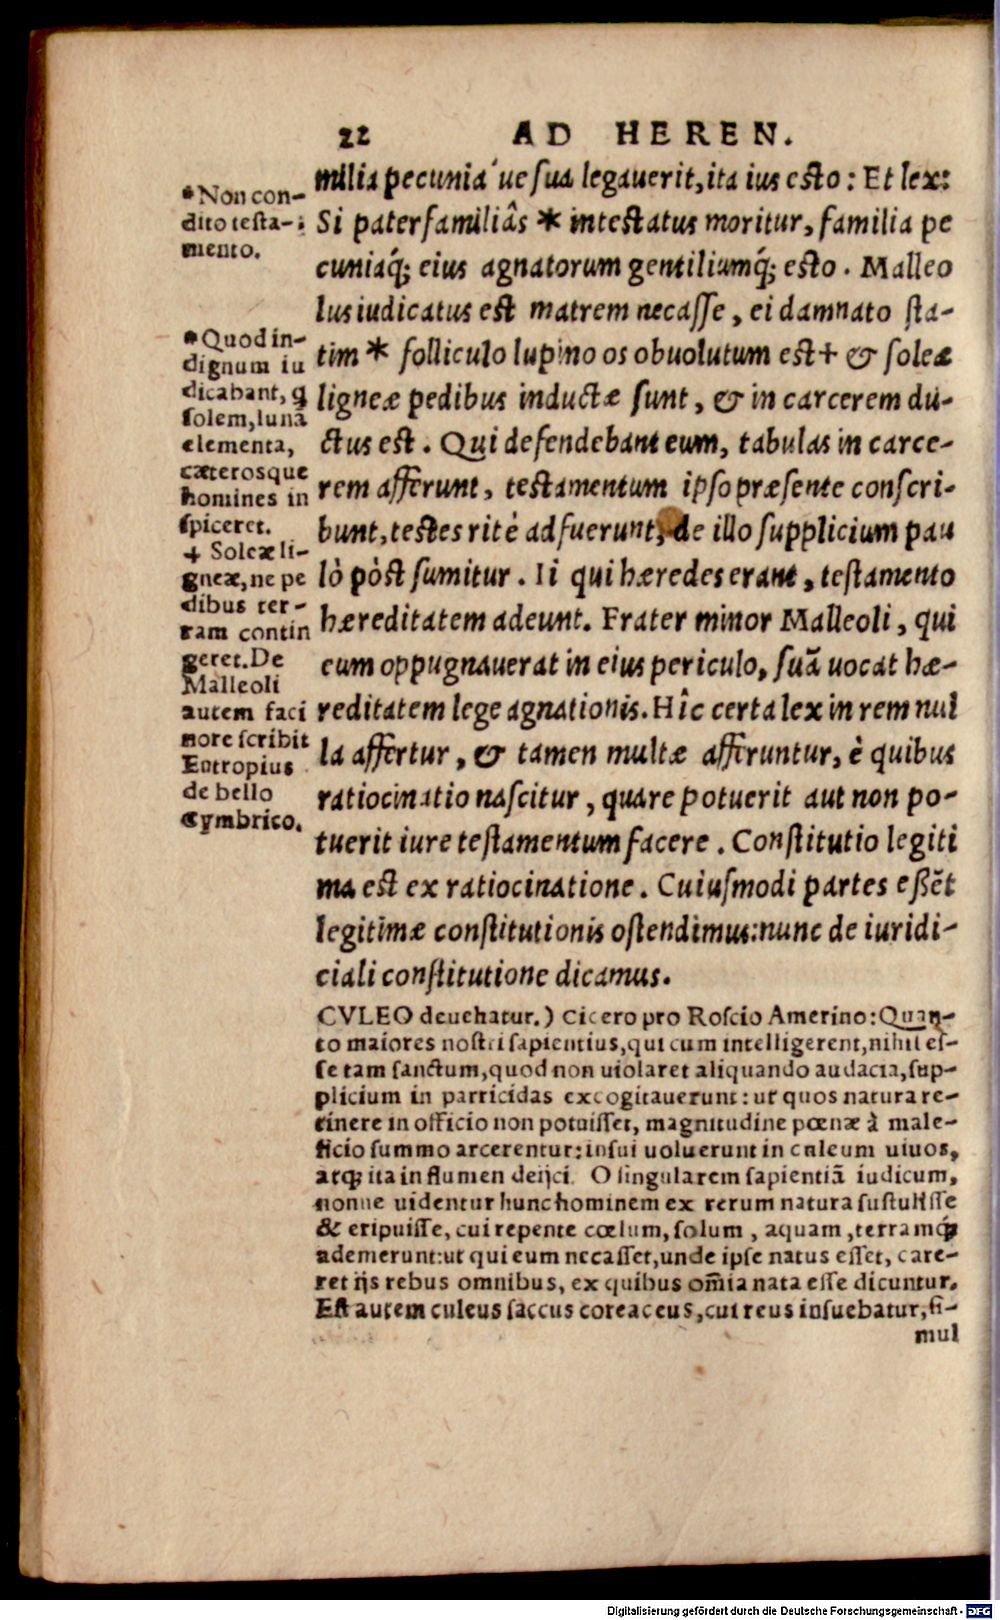 22 AD HEREN.
milia pecuniá ue sua legauerit, ita ius esto: Et lex:
Si paterfamiliâs * intestatus moritur, familia pe
cuniaq́; eius agnatorum gentiliumq́; esto. Malleo
lus iudicatus est matrem necasse, ei damnato sta-
tim * folliculo lupino os obuolutum est + & soleæ
ligneæ pedibus inductæ sunt, & in carcerem du-
ctus est. Qui defendebant eum, tabulas in carce-
rem afferunt, testamentum ipso præsente conscri-
bunt, testes ritè adfuerunt, de illo supplicium pau
lò pòst sumitur. Ii qui hæredes erant, testamento
hæreditatem adeunt. Frater minor Malleoli, qui
eum oppugnauerat in eius periculo, suā uocat hæ-
reditatem lege agnationis. Hîc certa lex in rem nul
la affertur, & tamen multæ afferuntur, è quibus
ratiocinatio nascitur, quare potuerit aut non po-
tuerit iure testamentum facere. Constitutio legiti
ma est ex ratiocinatione. Cuiusmodi partes eßēt
legitimæ constitutionis ostendimus: nunc de iuridi-
ciali constitutione dicamus.
*Non con-
dito testa-
mento.
*Quod in-
dignum iu
dicabant, q
solem, lunā
elementa,
cæterosque
homines in
spiceret.
+ Soleæ li-
gneæ, ne pe
dibus ter-
ram contin
geret. De
Malleoli
autem faci
nore scribit
Entropius
de bello
Cymbrico.
CVLEO deuehatur.) Cicero pro Roscio Amerino: Quan-
to maiores nostri sapientius, qui cum intelligerent, nihil es-
se tam sanctum, quod non uiolaret aliquando audacia, sup-
plicium in parricidas excogitauerunt: ut quos natura re-
tinere in officio non potuisset, magnitudine pœnæ à male-
ficio summo arcerentur: insui uoluerunt in culeum uiuos,
atq; ita in flumen deijci. O singularem sapientiā iudicum,
nonne uidentur hunc hominem ex rerum natura sustulisse
& eripuisse, cui repente cœlum, solum, aquam, terramq́;
ademerunt: ut qui eum necasset, unde ipse natus esset, care-
ret ijs rebus omnibus, ex quibus om̄ia nata esse dicuntur.
Est autem culeus saccus coreaceus, cui reus insuebatur, si-
mul
Digitalisierung gefördert durch die Deutsche Forschungsgemeinschaft - DFG